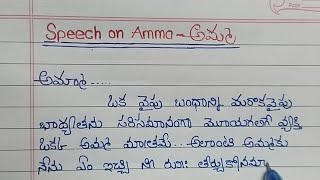 Speech on Amma - అమ్మ
అమ్మా.....
ఒక వైపు బంధాన్ని మరొకవైపు
బాధ్యతను సరిసమానంగా మోయగలిగే వ్యక్తి
ఒకే అమ్మ మాత్రమే...అలాంటి అమ్మకు
నేను ఏం ఇచ్చి నీ రుణం తీర్చుకోను